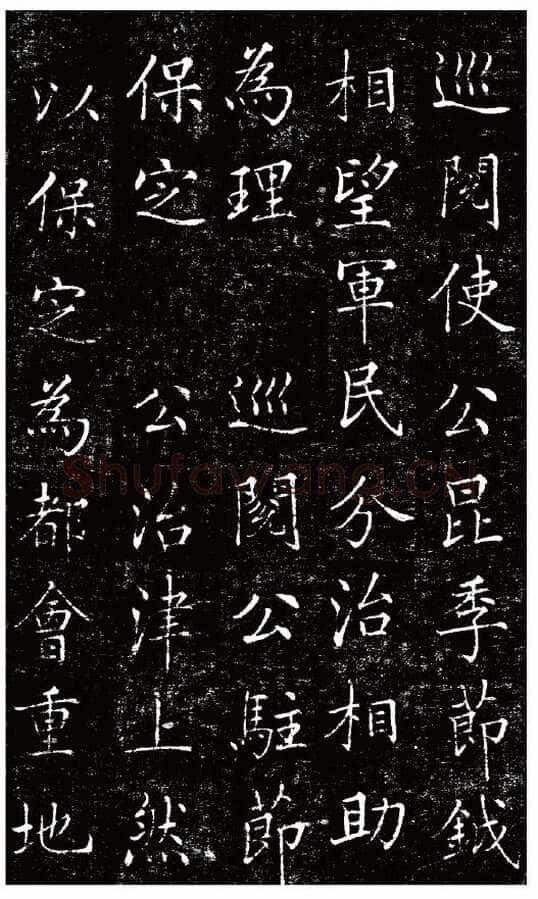 巡閱使公昆季節鉞
相望軍民分治相助
為理 巡閱公駐節
保定 公治津上然
以保定為都會重地
Shufawang.CN